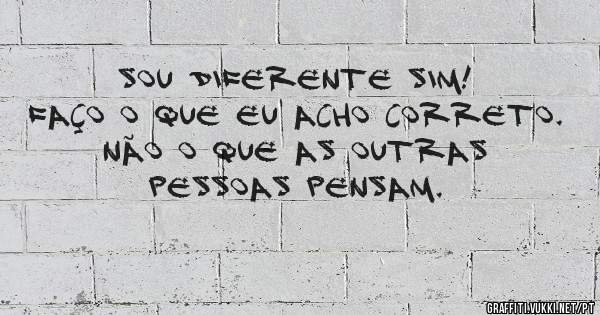 SOU DIFERENTE SIM!
FAÇO O QUE EU ACHO CORRETO.
NÃO O QUE AS OUTRAS
PESSOAS PENSAM.
GRAFFITI.VUKKI.NET/PT